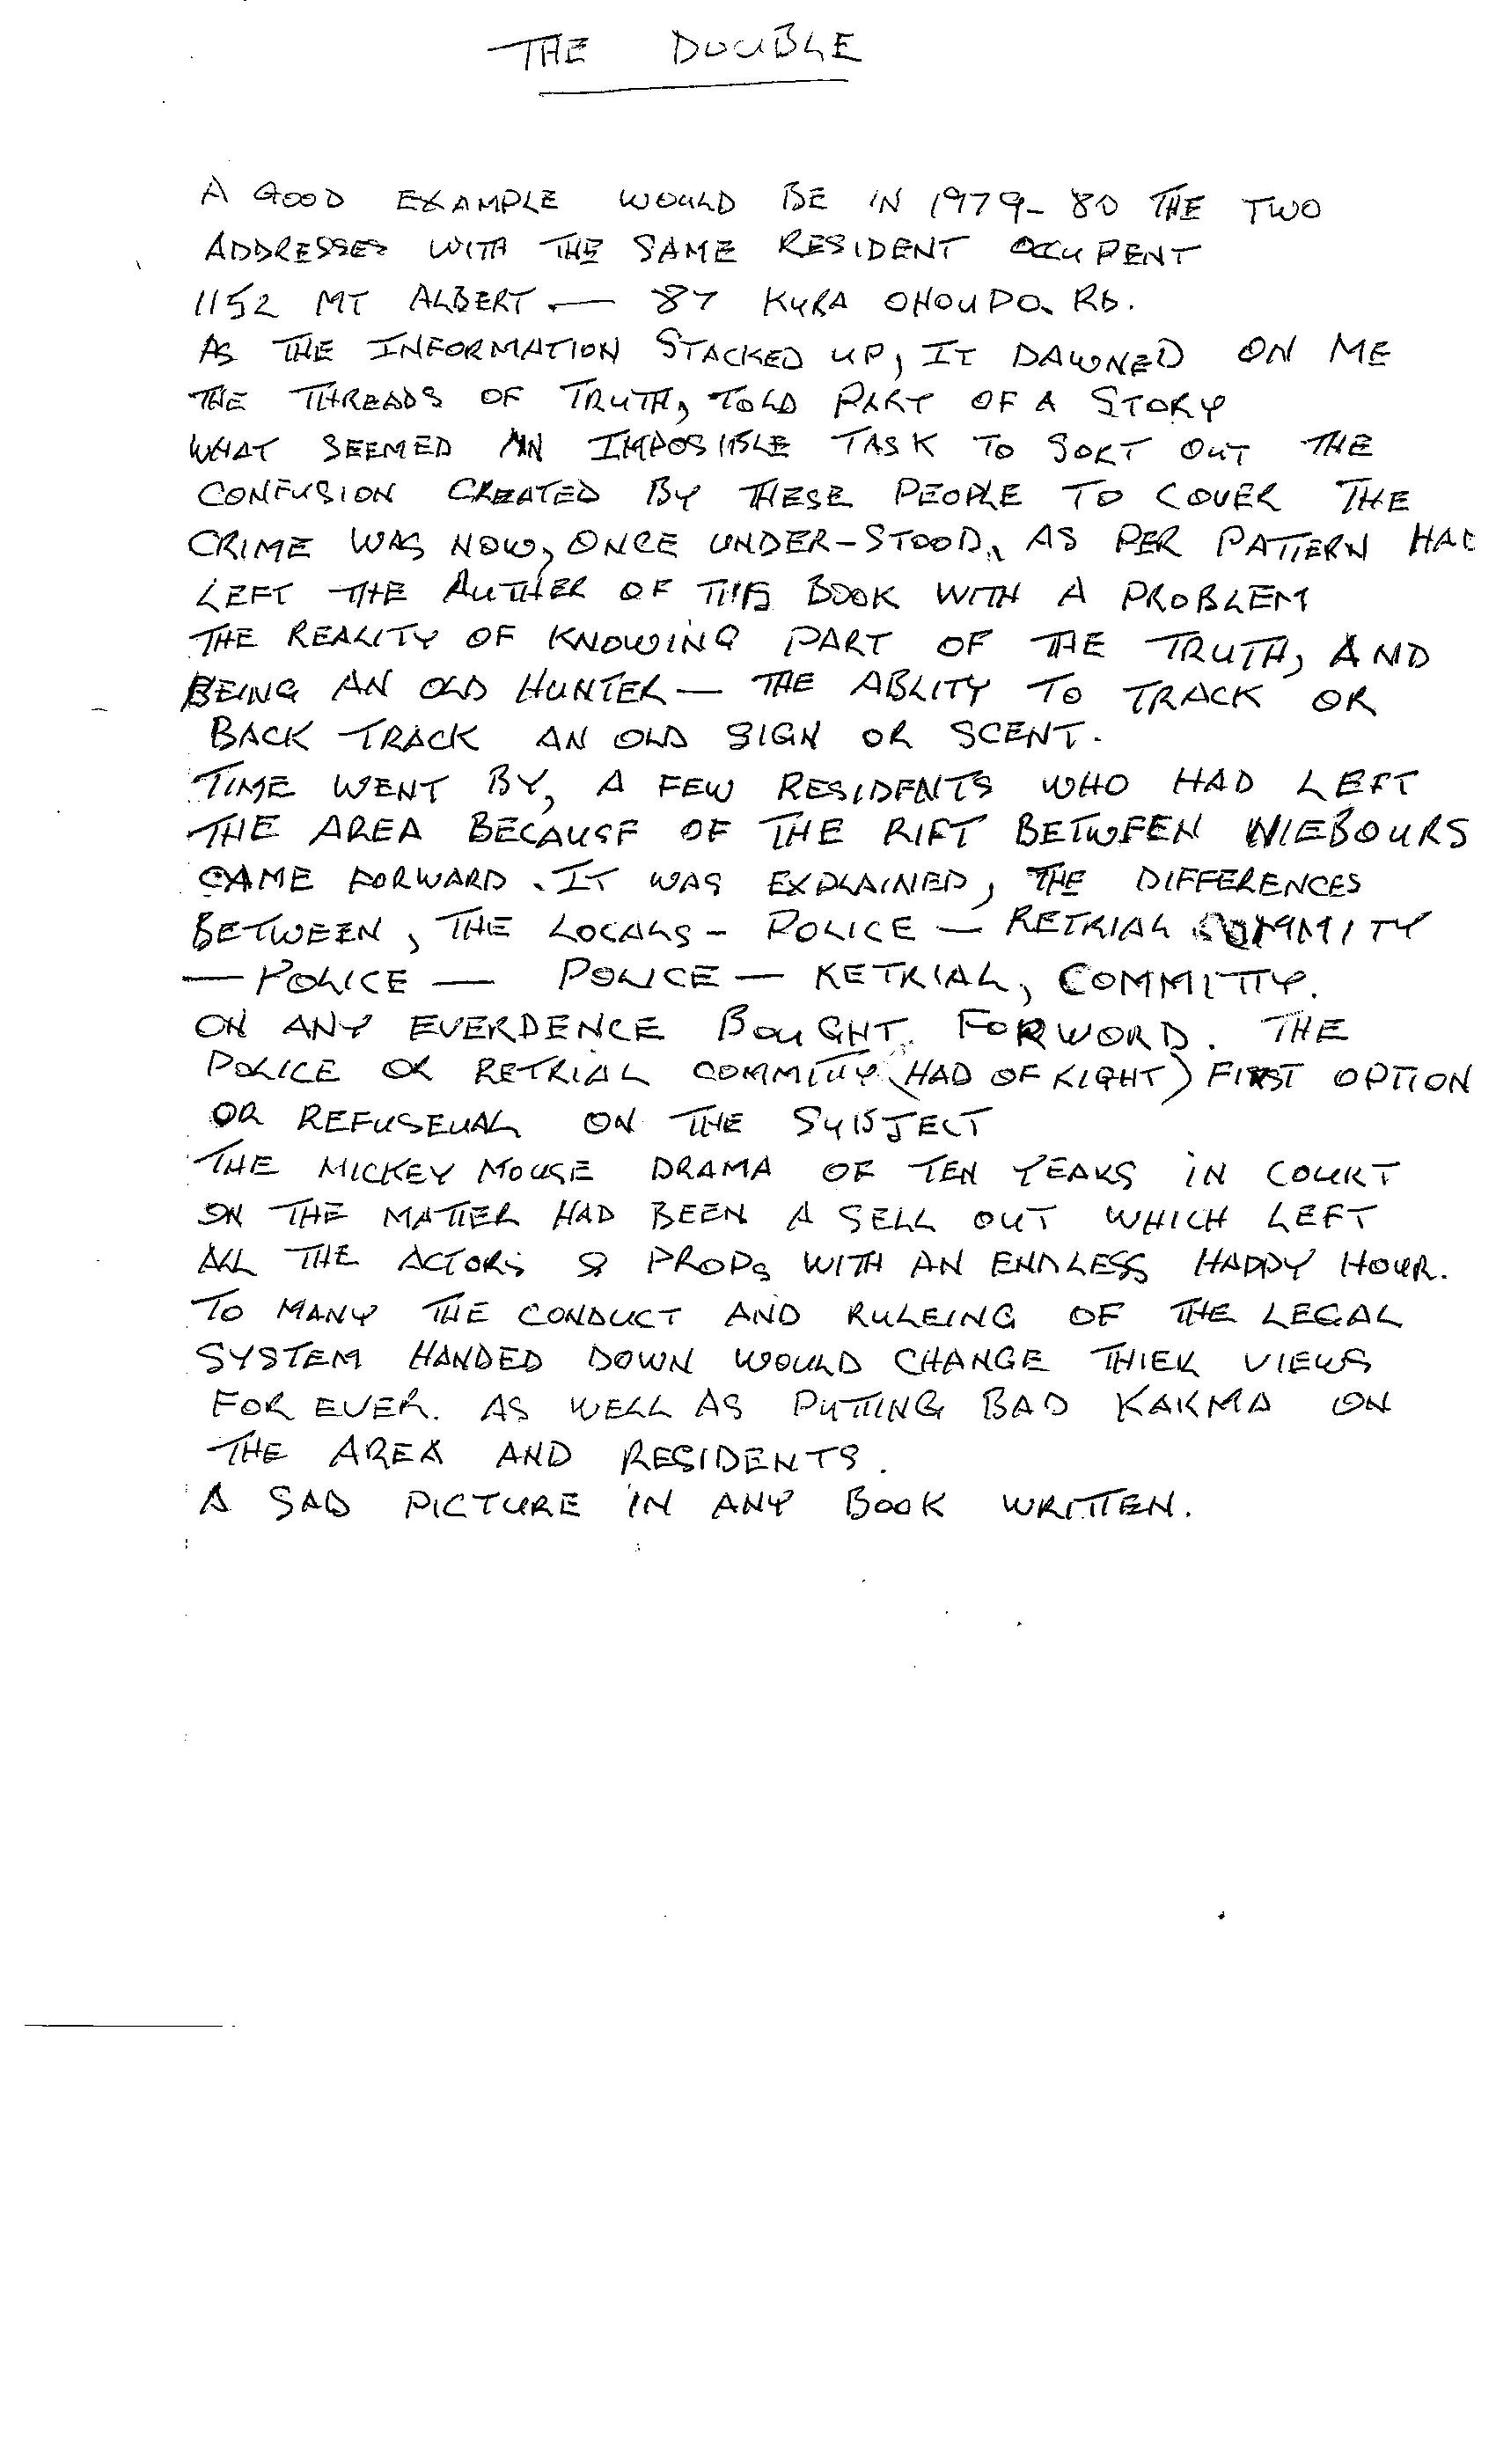 THE DOUBLE
A GOOD EXAMPLE WOULD BE IN 1979-80 THE TWO
ADDRESSES WITH THE SAME RESIDENT OCCUPENT
1152 MT ALBERT. — 87 KURA OHOUPO. RD.
AS THE INFORMATION STACKED UP, IT DAWNED ON ME
THE THREADS OF TRUTH, TOLD PART OF A STORY
WHAT SEEMED AN IMPOSIBLE TASK TO SORT OUT THE
CONFUSION CREATED BY THESE PEOPLE TO COVER THE
CRIME WAS NOW, ONCE UNDER-STOOD, AS PER PATTERN HAD
LEFT THE AUTHER OF THIS BOOK WITH A PROBLEM
THE REALITY OF KNOWING PART OF THE TRUTH, AND
BEING AN OLD HUNTER — THE ABLITY TO TRACK OR
BACK TRACK AN OLD SIGN OR SCENT.
TIME WENT BY, A FEW RESIDENTS WHO HAD LEFT
THE AREA BECAUSE OF THE RIFT BETWEEN NIEBOURS
CAME FORWARD. IT WAS EXPLAINED, THE DIFFERENCES
BETWEEN, THE LOCALS - POLICE — RETRIAL COMMITY
— POLICE — POLICE — RETRIAL, COMMITTY.
ON ANY EVERDENCE BOUGHT FORWORD. THE
POLICE OR RETRIAL COMMITTY (HAD OF RIGHT) FIRST OPTION
OR REFUSEUAL ON THE SUBJECT
THE MICKEY MOUSE DRAMA OF TEN YEARS IN COURT
ON THE MATTER HAD BEEN A SELL OUT WHICH LEFT
ALL THE ACTORS & PROPS WITH AN ENDLESS HAPPY HOUR.
TO MANY THE CONDUCT AND RULEING OF THE LEGAL
SYSTEM HANDED DOWN WOULD CHANGE THIER VIEWS
FOR EVER. AS WELL AS PUTTING BAD KARMA ON
THE AREA AND RESIDENTS.
A SAD PICTURE IN ANY BOOK WRITTEN.